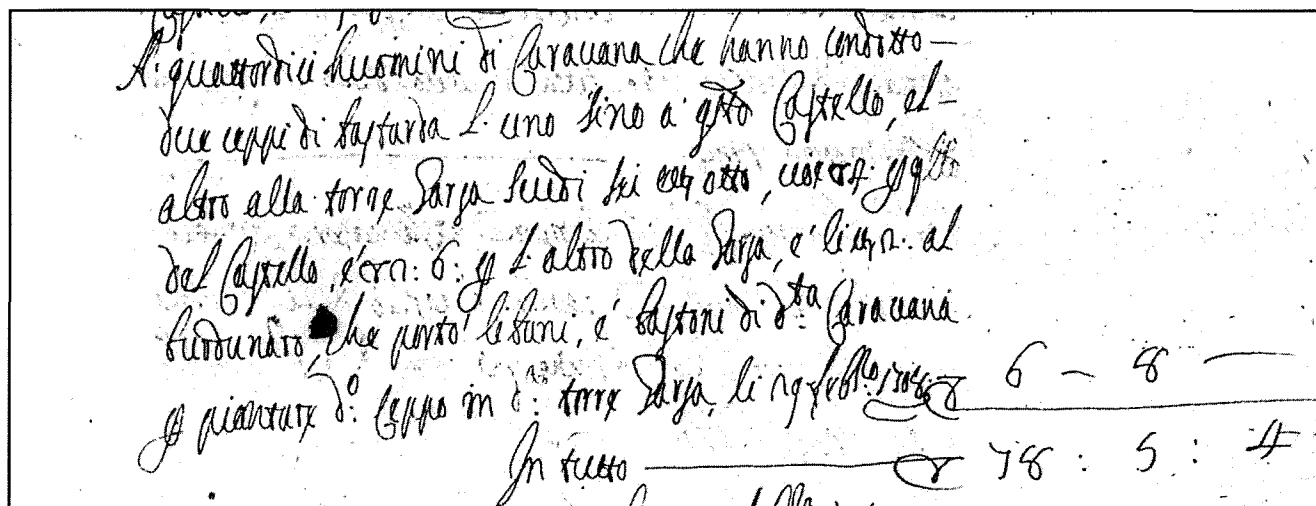 A quattordici huomini di Carauana che hanno condotto—
due ceppi di bastarda l'uno sino a q.sto Castello, el—
altro alla torre Darsa scudi sei otto,
del Castello, è 6: p l'altro della Darsa, è li al
burdunaro, che portò li funi, è bastoni di d.ta Carauana
p piantare d.o Ceppo in d.a torre Darsa, li 6 – 8 —
In tutto — 78 : 5 : 4